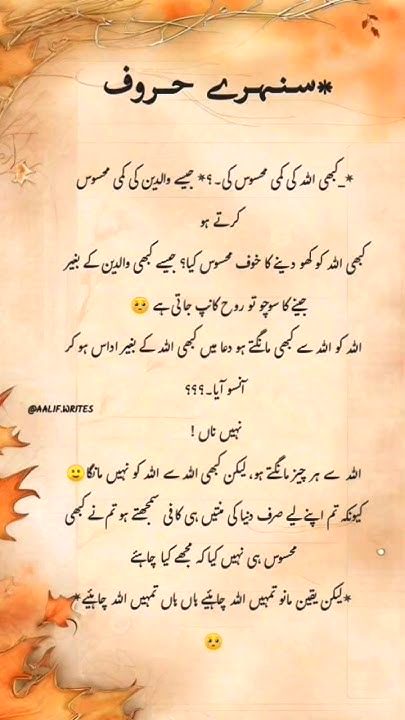 *سنہرے حروف
*_کبھی اللہ کی کمی محسوس کی۔؟* جیسے والدین کی کمی محسوس
کرتے ہو
کبھی اللہ کو کھو دینے کا خوف محسوس کیا؟ جیسے کبھی والدین کے بغیر
جینے کا سوچو تو روح کانپ جاتی ہے 🥺
اللہ کو اللہ سے کبھی مانگتے ہو دعا میں کبھی اللہ کے بغیر اداس ہو کر
آنسو آیا۔؟؟؟
@AALIF.WRITES
نہیں ناں !
اللہ سے ہر چیز مانگتے ہو، لیکن کبھی اللہ سے اللہ کو نہیں مانگا🙂
کیونکہ تم اپنے لیے صرف دنیا کی منتیں ہی کافی سمجھتے ہو تم نے کبھی
محسوس ہی نہیں کیا کہ مجھے کیا چاہئے
*لیکن یقین مانو تمہیں اللہ چاہئیے ہاں ہاں تمہیں اللہ چاہئیے*
🥺